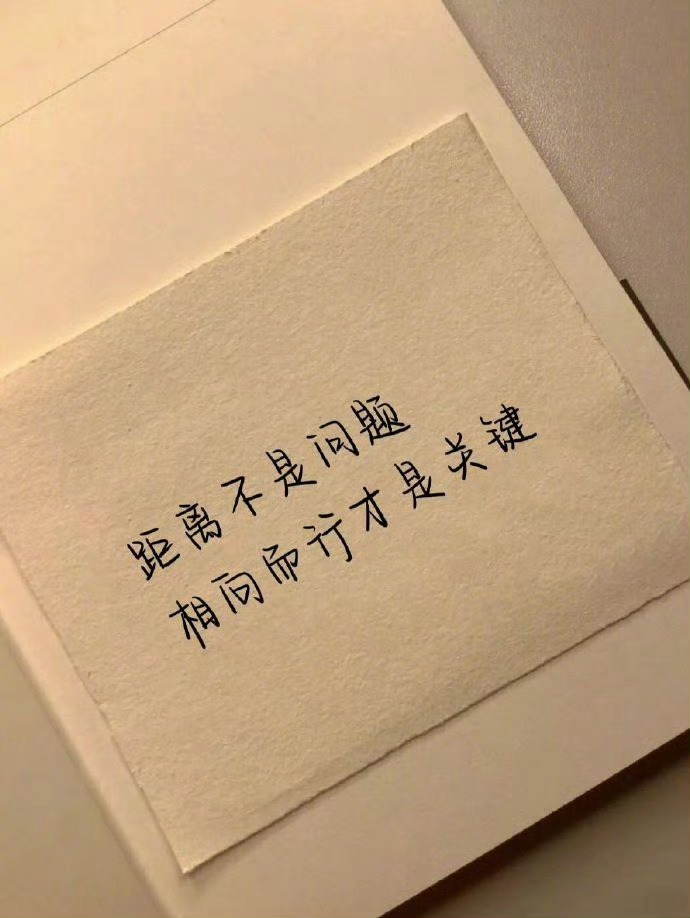 距离不是问题
相向而行才是关键